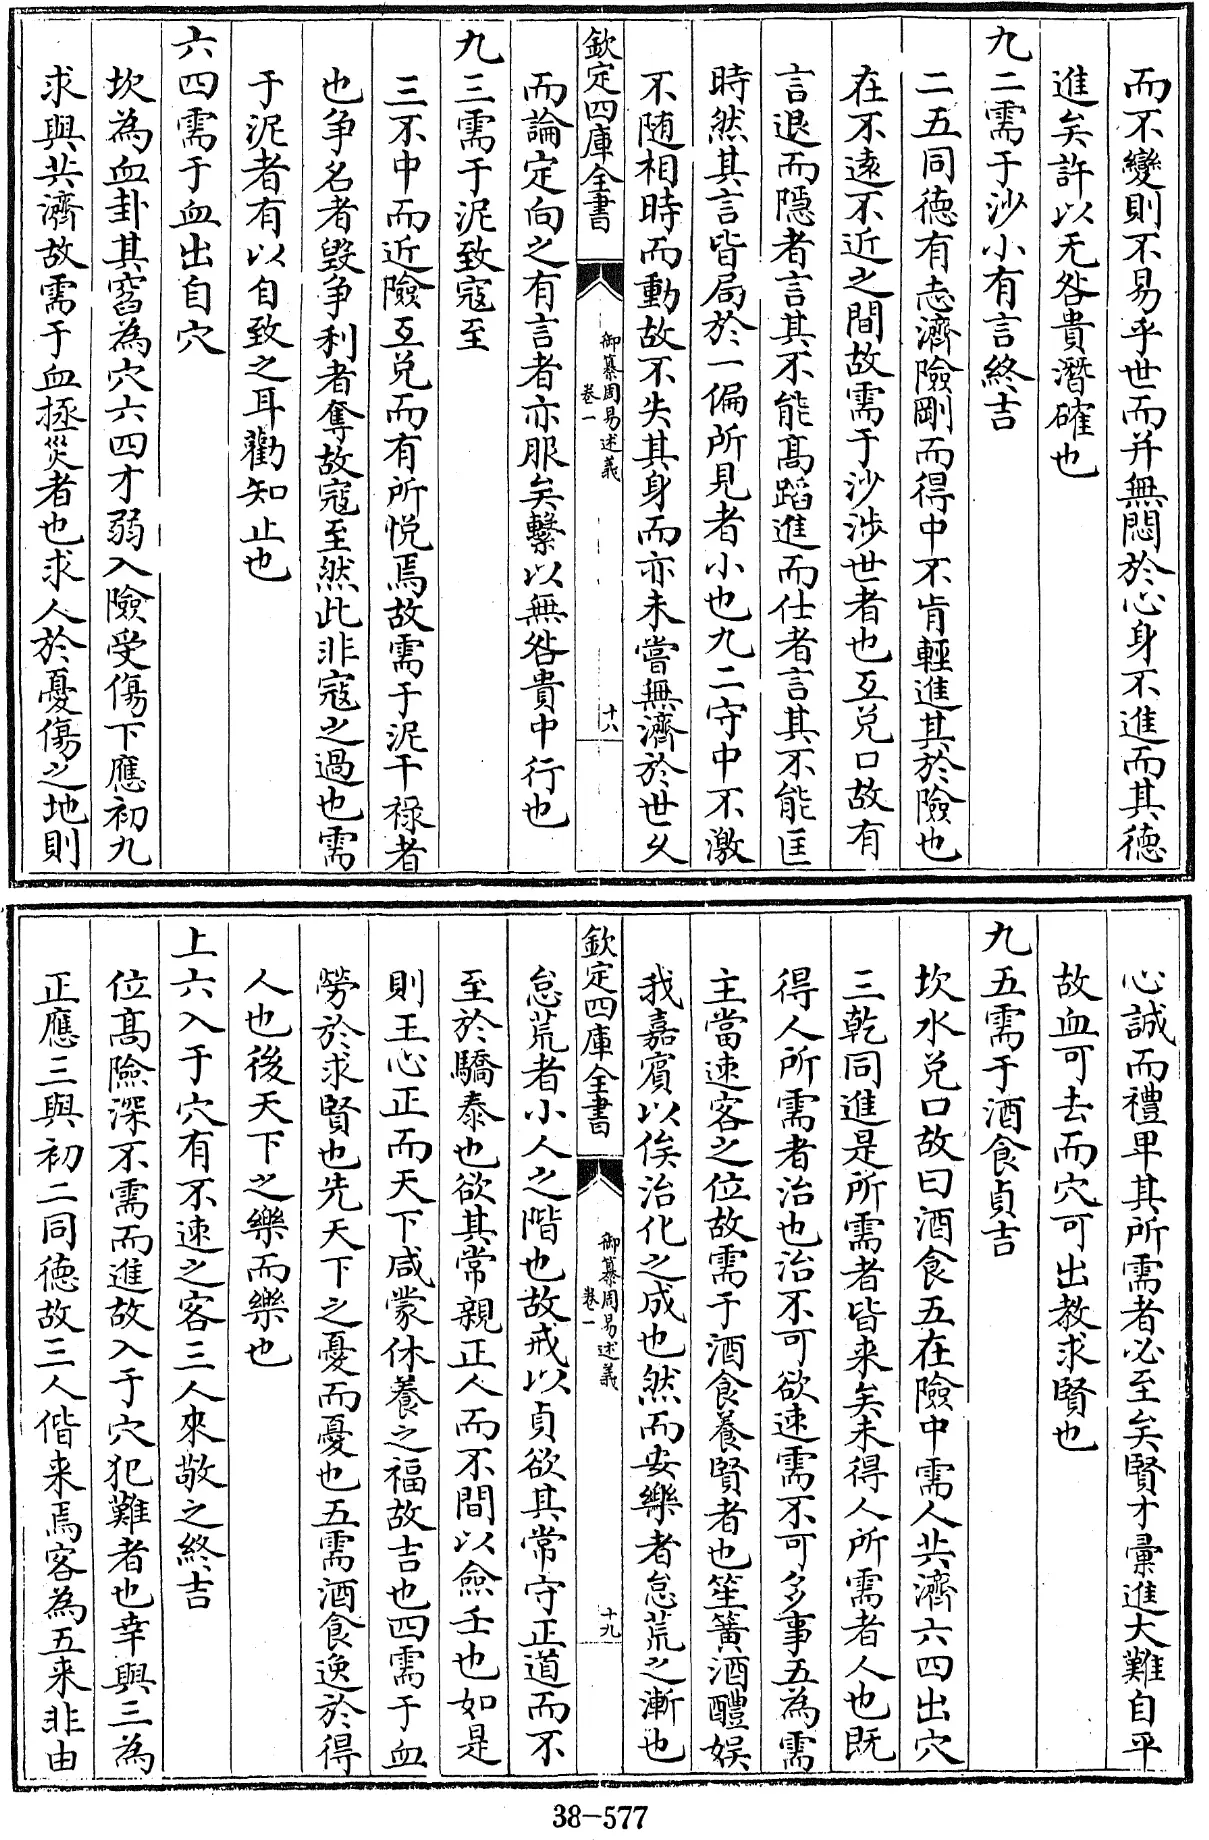 而不變則不易乎世而并無悶於心身不進而其德
進矣許以无咎貴潛確也
九二需于沙小有言終吉
二五同德有志濟險剛而得中不肯輕進其於險也
在不遠不近之間故需于沙涉世者也互兌口故有
言退而隱者言其不能高蹈進而仕者言其不能匡
時然其言皆局於一偏所見者小也九二守中不激
不隨相時而動故不失其身而亦未嘗無濟於世久
欽定四庫全書
御纂周易述義
卷一
十八
而論定向之有言者亦服矣繫以無咎貴中行也
九三需于泥致寇至
三不中而近險互兌而有所悅焉故需于泥干祿者
也爭名者毀爭利者奪故寇至然此非寇之過也需
于泥者有以自致之耳勸知止也
六四需于血出自穴
坎為血卦其窞為穴六四才弱入險受傷下應初九
求與共濟故需于血拯災者也求人於憂傷之地則
心誠而禮卑其所需者必至矣賢才彙進大難自平
故血可去而穴可出教求賢也
九五需于酒食貞吉
坎水兌口故曰酒食五在險中需人共濟六四出穴
三乾同進是所需者皆来矣未得人所需者人也既
得人所需者治也治不可欲速需不可多事五為需
主當速客之位故需于酒食養賢者也笙簧酒醴娱
我嘉賓以俟治化之成也然而安樂者怠荒之漸也
欽定四庫全書
御纂周易述義
卷一
十九
怠荒者小人之階也故戒以貞欲其常守正道而不
至於驕泰也欲其常親正人而不間以僉壬也如是
則王心正而天下咸蒙休養之福故吉也四需于血
勞於求賢也先天下之憂而憂也五需酒食逸於得
人也後天下之樂而樂也
上六入于穴有不速之客三人來敬之終吉
位高險深不需而進故入于穴犯難者也幸與三為
正應三與初二同德故三人偕来焉客為五来非由
38-577